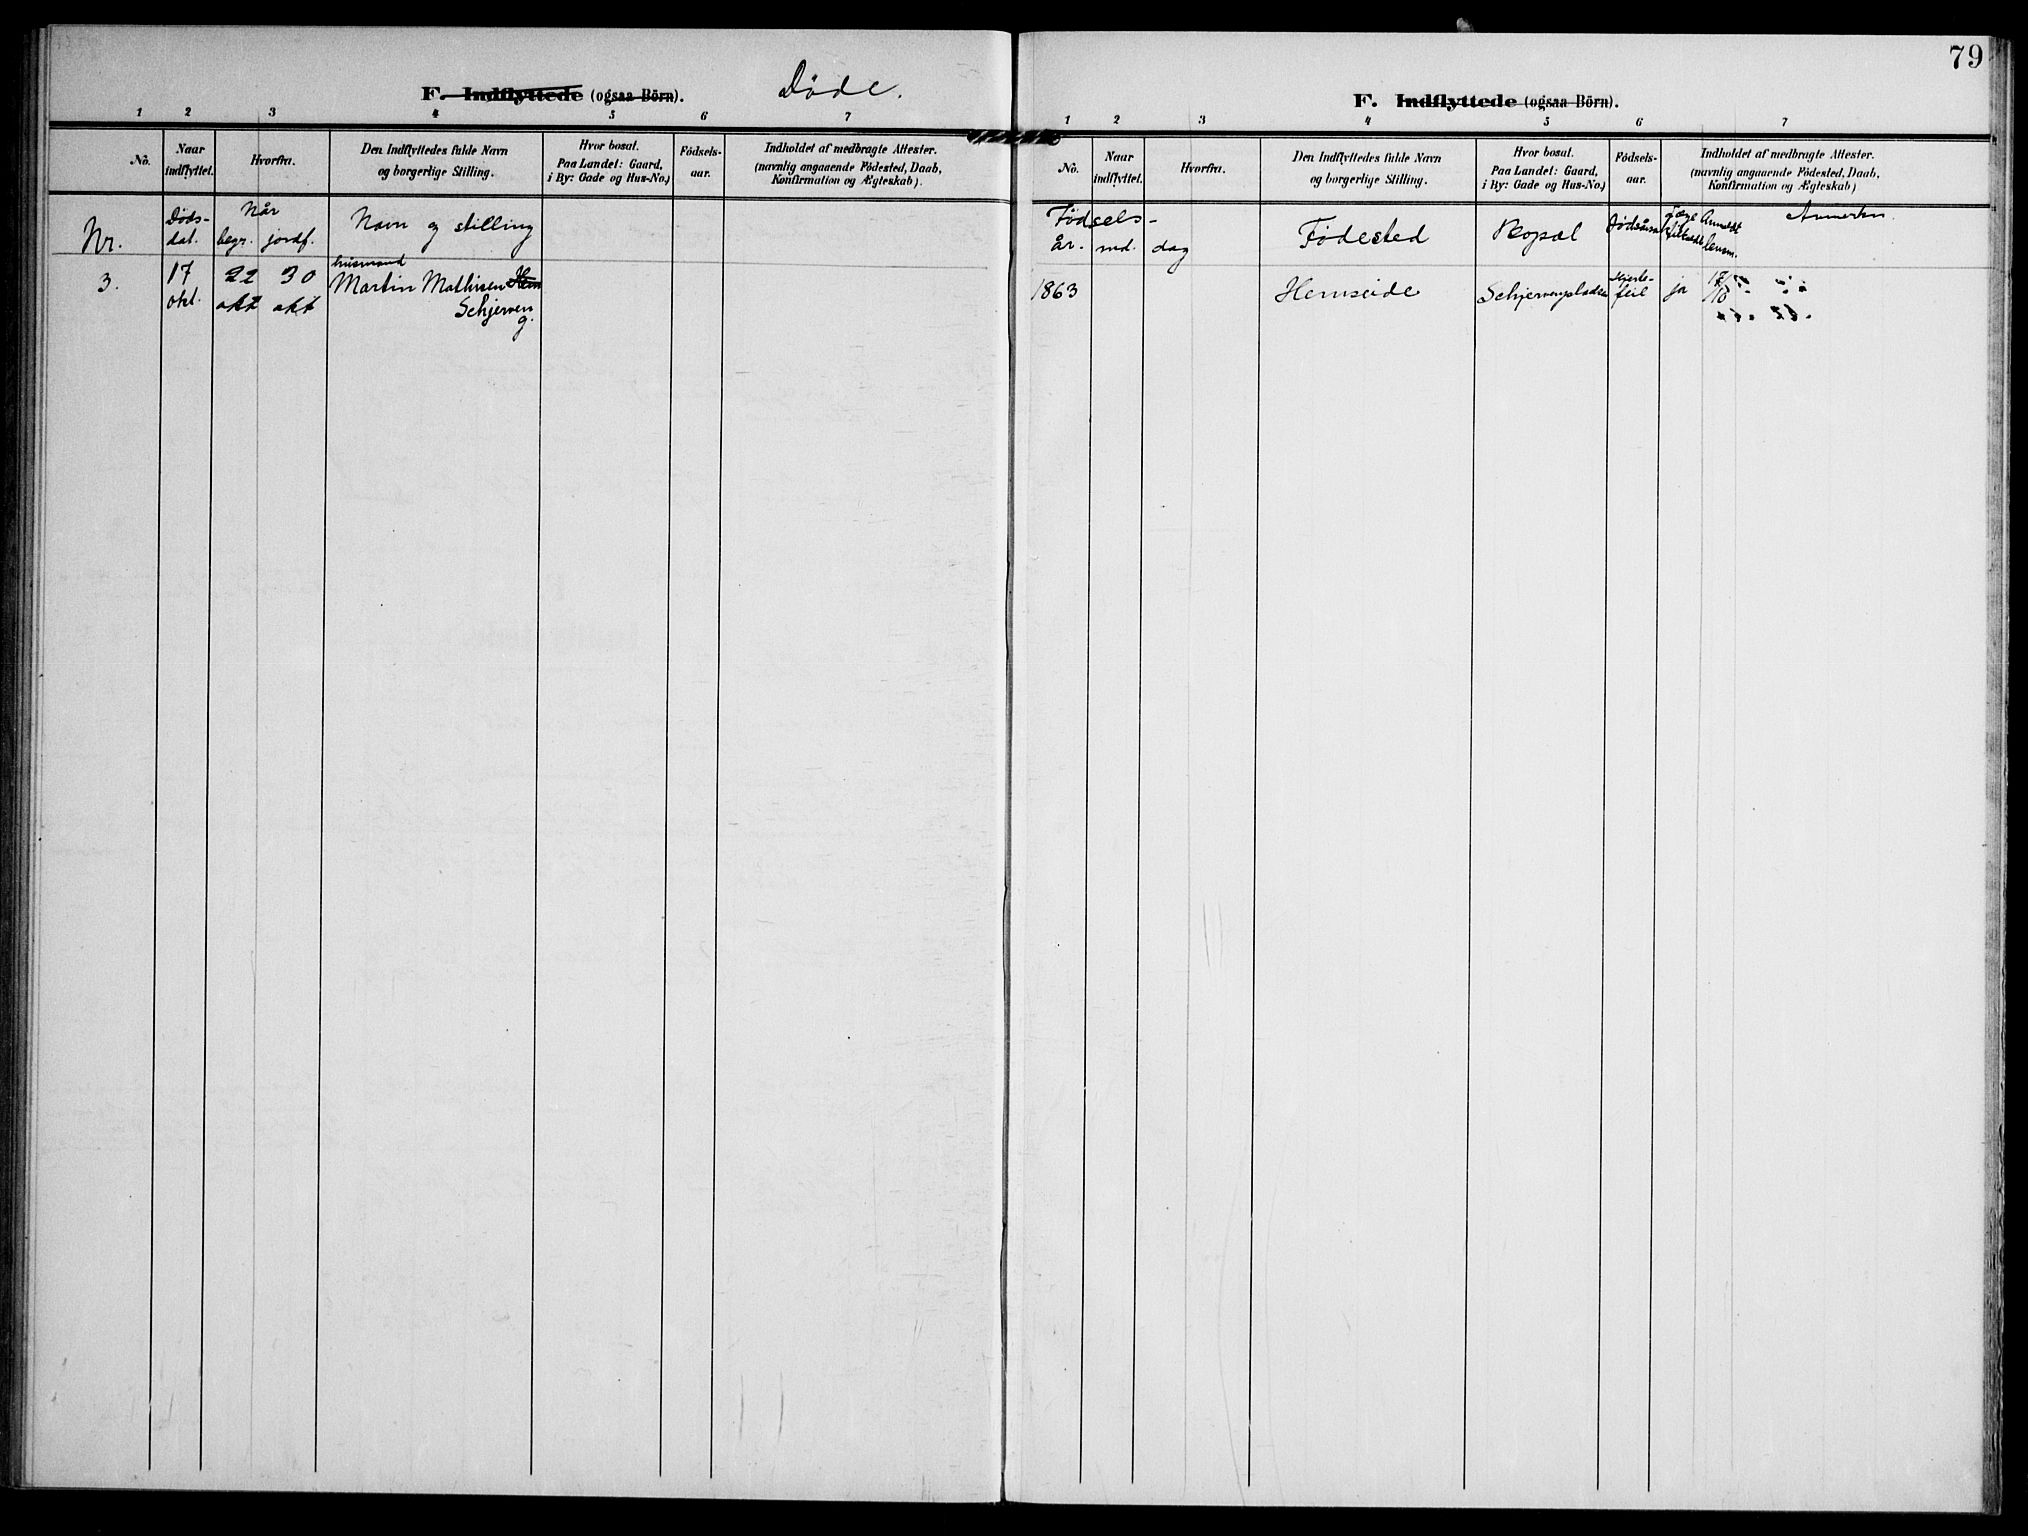 79
F. Indflyttede (ogsaa Börn). Døde.
1 2 3 4 5 6 7
No. Naar indflyttet. Hvorfra. Den Indflyttedes fulde Navn og borgerlige Stilling. Hvor bosat. Paa Landet: Gaard, i By: Gade og Hus-No.) Födsels-aar. Indholdet af medbragte Attester. (navnlig angaaende Födested, Daab, Konfirmation og Ægteskab).
Nr. Døds-dat. Når begr. jordf. Navn og stilling
3. 17 okt. 22 okt 30 okt husmand Martin Mathisen Hem Schjerven g.
F. Indflyttede (ogsaa Börn).
1 2 3 4 5 6 7
No. Naar indflyttet. Hvorfra. Den Indflyttedes fulde Navn og borgerlige Stilling. Hvor bosat. Paa Landet: Gaard, i By: Gade og Hus-No.) Födsels-aar. Indholdet af medbragte Attester. (navnlig angaaende Födested, Daab, Konfirmation og Ægteskab)
Fødsels- år. md. dag Fødested Bopæl Dødsårsak Læge tilkaldt Anmeldt lensm. Anmerkn.
1863 Hemseide Hjerte-feil ja 17/10